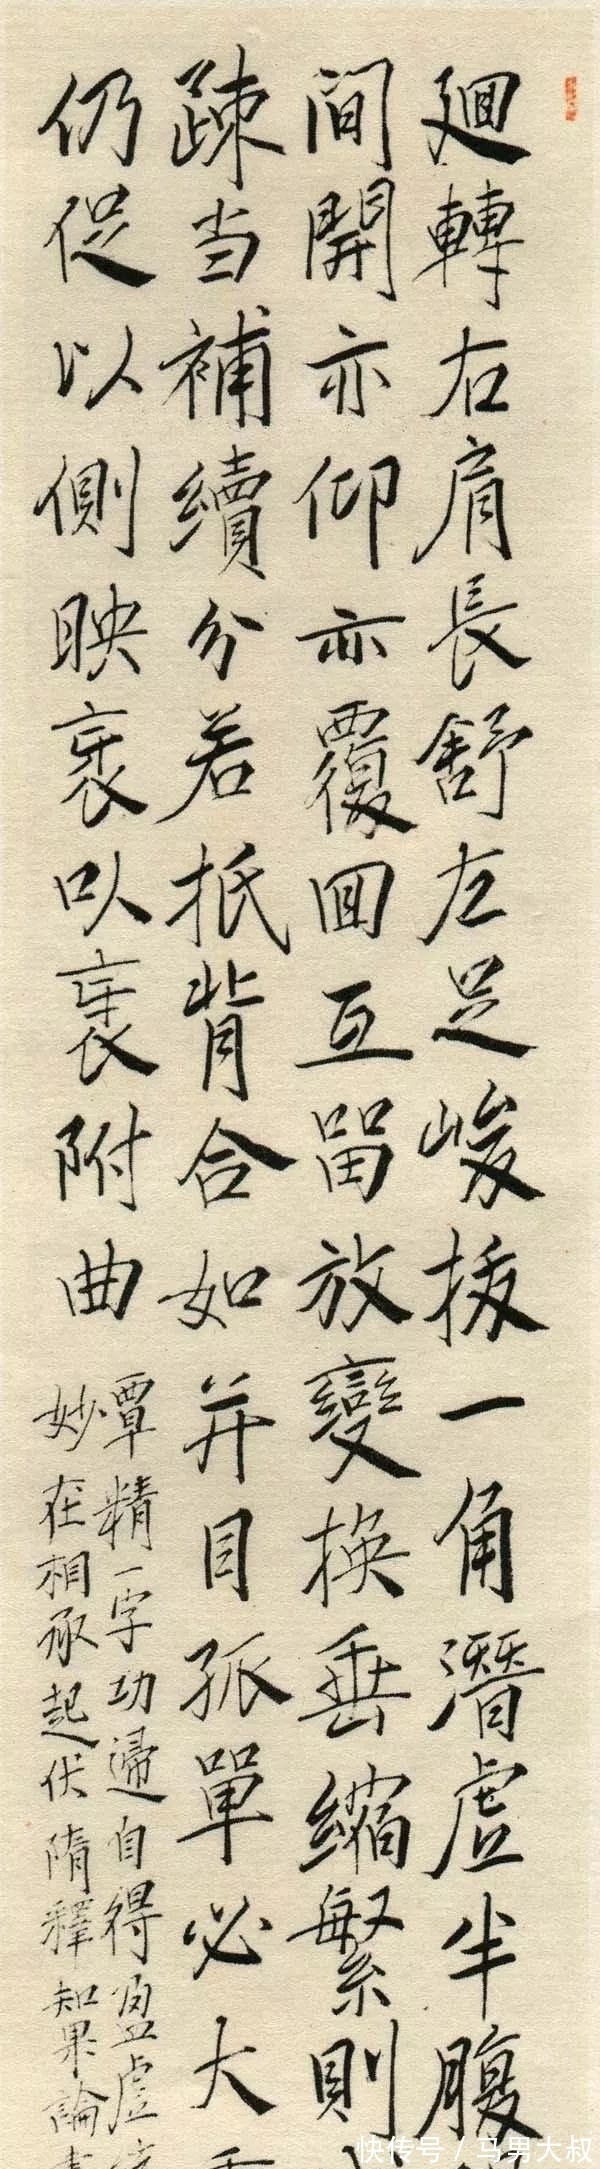 廻轉右肩長舒左足峻拔一角潛虛半腹
間開亦仰亦覆回互留放變換垂縮繁則
疎当補續分若抵背合如并目孤單必大
仍促以側映衺以衺附曲
覃精一字功歸自得盈虛
妙在相承起伏隋釋知果論
快传号 / 马男大叔